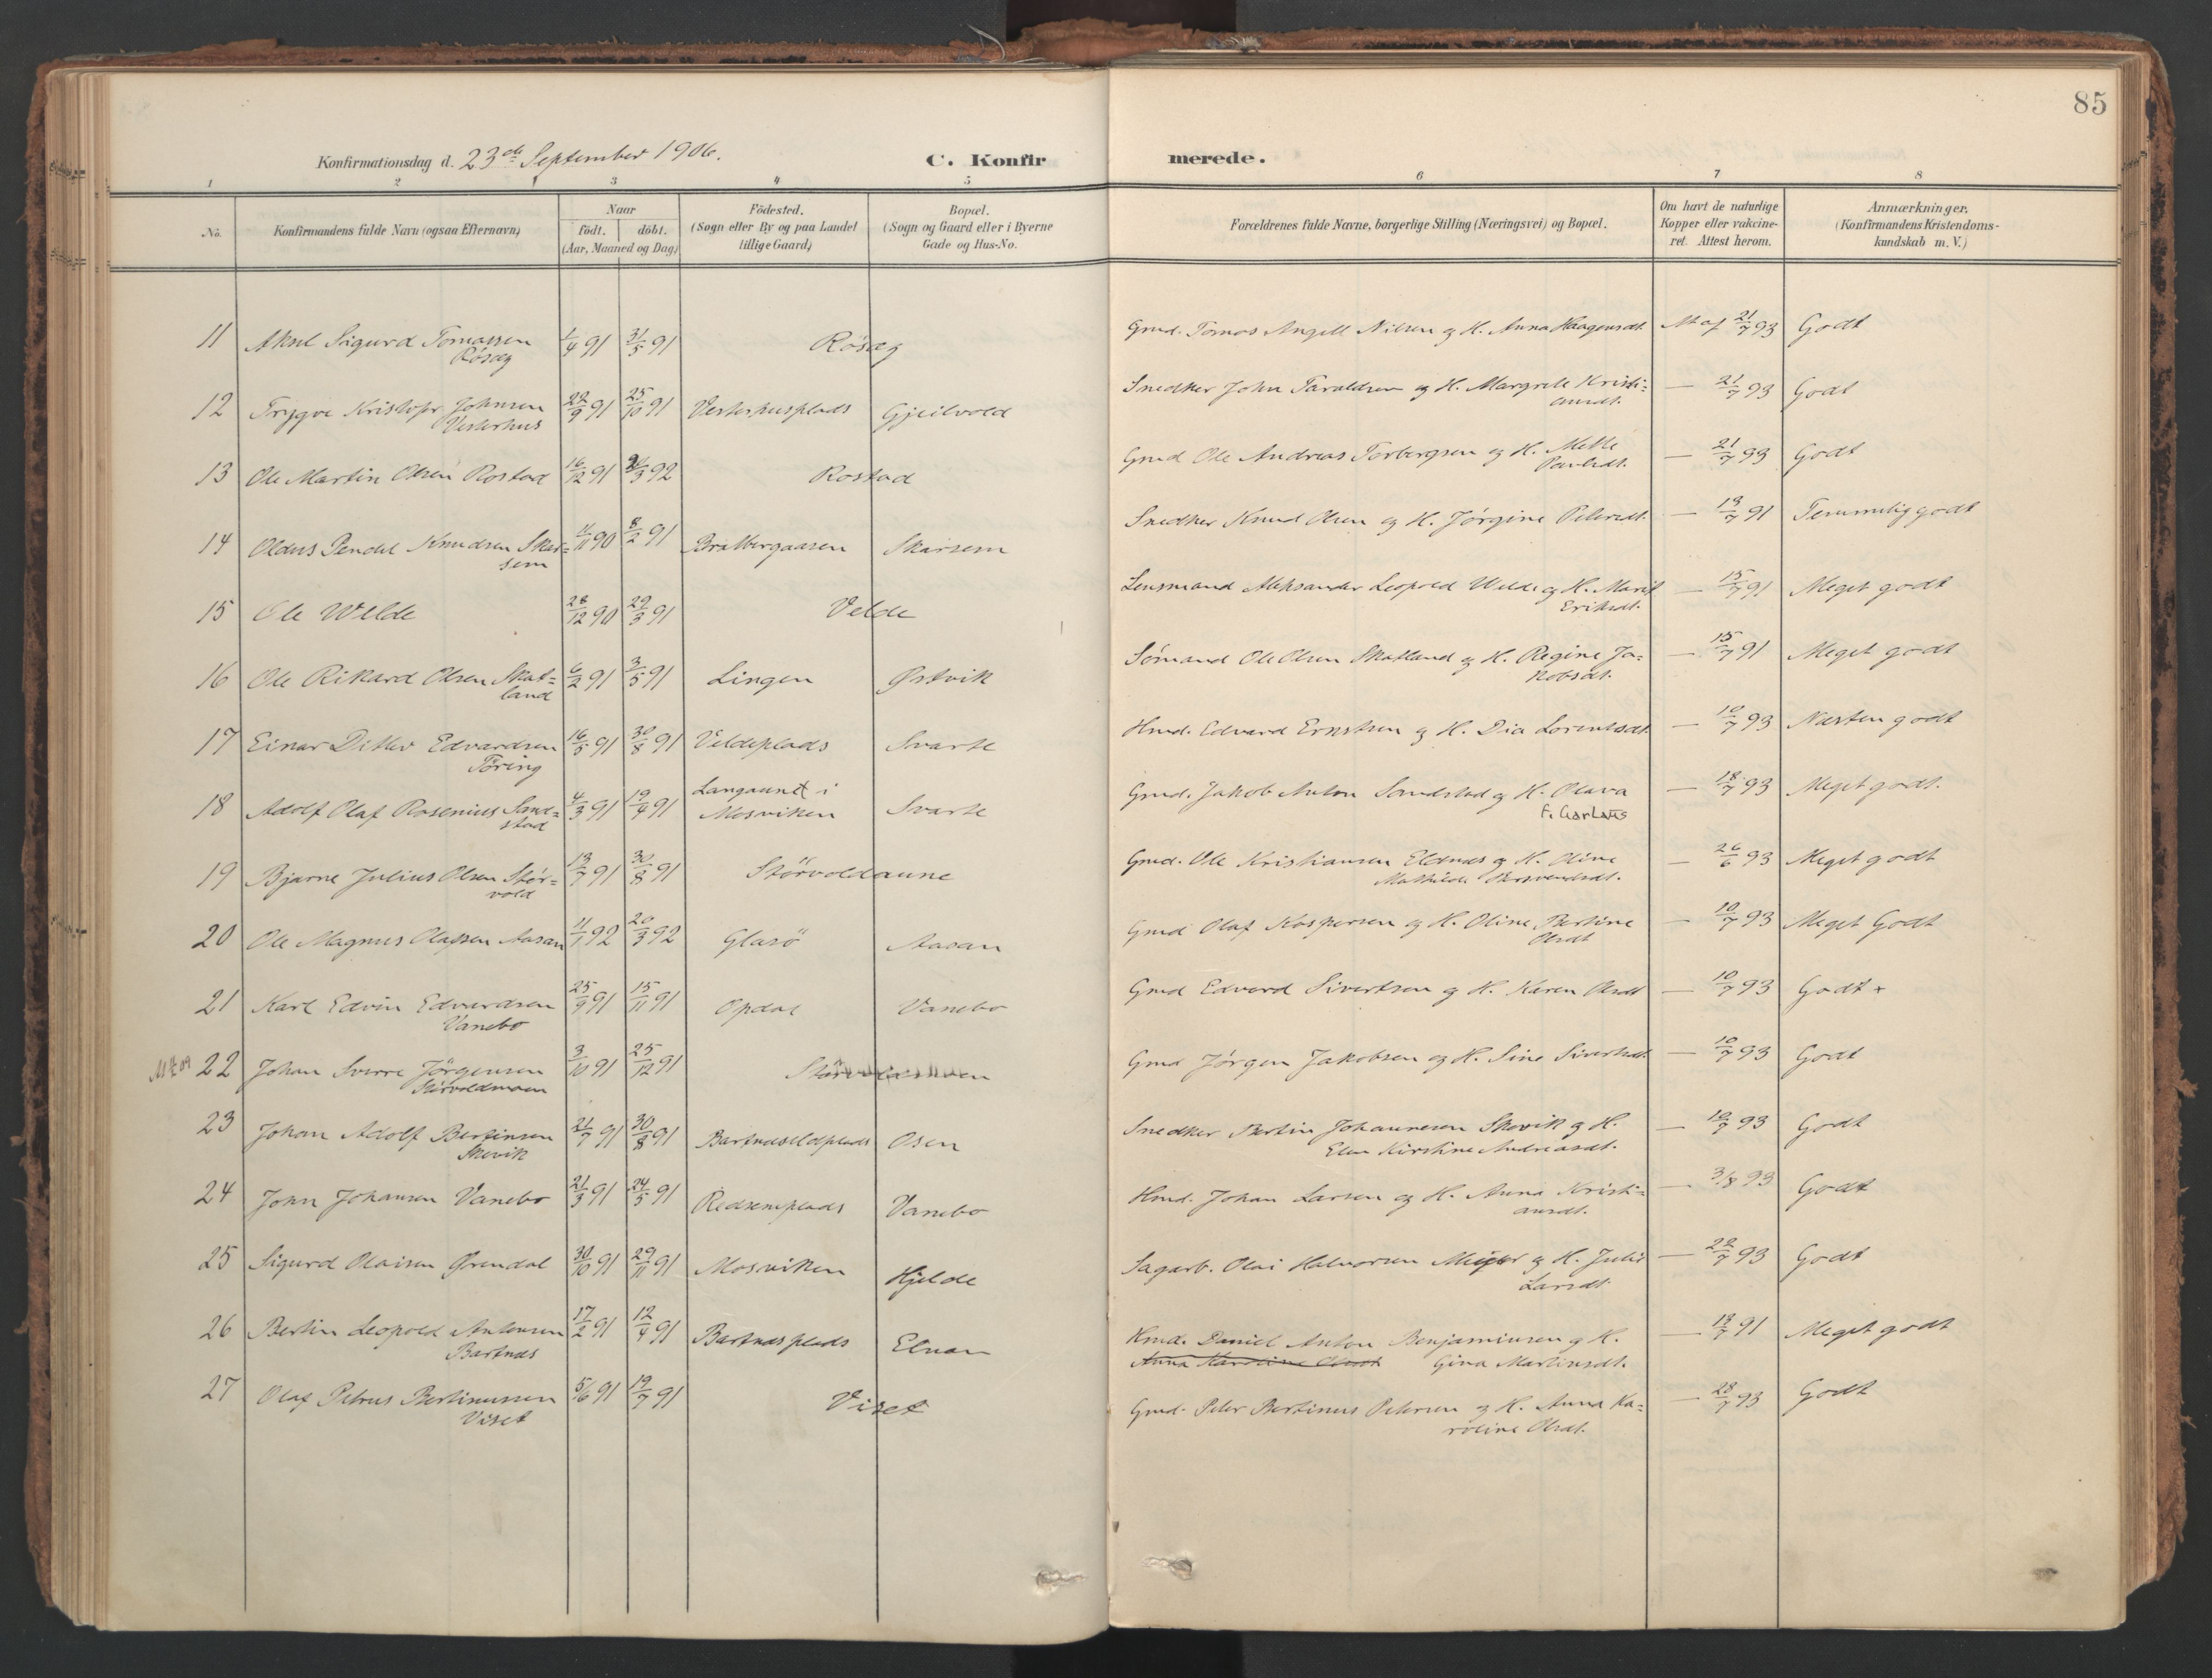 85
Konfirmationsdag d. 23de September 1906.
C. Konfirmerede.
1 2 3 4 5 6 7 8
No.
Konfirmandens fulde Navn (ogsaa Efternavn)
Naar
födt. döbt.
(Aar, Maaned og Dag)
Födested.
(Sogn eller By og paa Landet
tillige Gaard)
Bopæl.
(Sogn og Gaard eller i Byerne
Gade og Hus-No.
Forældrenes fulde Navne, borgerlige Stilling (Næringsvei) og Bopæl.
Om havt de naturlige
Kopper eller vakcine-
ret. Attest herom.
Anmærkninger.
(Konfirmandens Kristendoms-
kundskab m. V.)
11 Aksel Sigurd Tomassen 1/4 91 31/5 91 Røsæg Gmd. Tomas Angell Nilsen og H. Anna Haagensdt. At af 21/7 93 Godt
Røsæg
12 Trygve Kristofer Johnsen 22/9 91 25/10 91 Vesterhusplads Gjeilvold Snedker John Taraldsen og H. Margrete Kristi= — 21/7 93 Godt
Vesterhus
ansdt.
13 Ole Martin Olsen Rostad 16/12 91 21/3 92 Rostad Gmd Ole Andreas Torbergsen og H. Mette — 21/7 93 Godt
Paulsdt.
14 Oldus Pendel Knudsen Skar= 11/11 90 8/2 91 Bratbergaasen Skarsem Snedker Knud Olsen og H. Jørgine Petersdt. — 13/7 91 Temmelig godt
sem
15 Ole Welde 28/12 90 29/3 91 Velde Lensmand Aleksander Leopold Welde og H. Marit — 15/7 91 Meget godt
Eriksdt.
16 Ole Rikard Olsen Skat= 6/2 91 3/5 91 Lingen Østvik Sømand Ole Olsen Skatland og H. Regine Ja= — 15/7 91 Meget godt
land
kobsdt.
17 Einar Ditlev Edvardsen 16/5 91 30/8 91 Veldeplads Svarte Hmd. Edvard Ernstsen og H. Dia Lorentsdt. — 10/7 93 Næsten godt
Tøring
18 Adolf Olaf Rosenius Sand= 4/3 91 19/4 91 Langaunet i
Mosviken Svarte Gmd. Jakob Anton Sandstad og H. Olava — 18/7 93 Meget godt.
stad
19 Bjarne Julius Olsen Stør= 13/7 91 30/8 91 Störvoldaune Gmd. Ole Kristiansen Eldnes og H. Oline — 26/6 93 Meget godt
vold
Mathilde
20 Ole Magnus Olafsen Aasan 11/1 92 20/3 92 Glasö Aasan Gmd Olaf Kaspersen og H. Oline Bertine — 10/7 93 Meget Godt
Olsdt
21 Karl Edvin Edvardsen 25/9 91 15/11 91 Opdal Vanebo Gmd Edvard Sivertsen og H. Karen Olsdt — 10/7 93 Godt +
Vanebo
22 Johan Sverre Jørgensen 3/10 91 25/12 91 Gmd Jørgen Jakobsen og H. Sine Sivertsdt. — 10/7 93 Godt
Störvoldmoen
23 Johan Adolf Bertinsen 21/7 91 30/8 91 Bartnæseldplads Osen Snedker Bertin Johannesen Skevik og H. — 10/7 93 Godt
Skevik
Elen Kirstine Andreasdt.
24 John Johansen Vanebo 21/3 91 24/5 91 Redsemplads Vanebo Hmd. Johan Larsen og H. Anna Kristi= — 3/8 93 Godt
ansdt.
25 Sigurd Olaisen Ørendal 30/10 91 29/11 91 Mosviken Hjelde Sagarb. Olai Halvorsen Meiger og H. Julie — 22/7 93 Godt
Larsdt.
26 Bertin Leopold Antonsen 17/2 91 12/4 91 Bartnæsplads Elnan Hmd. Daniel Anton Benjaminsen og H. — 13/7 91 Meget godt
Bartnæs
Anna Karoline Olsdt Gina Martinsdt.
27 Olaf Petrus Bertinussen 5/6 91 19/7 91 Viset Gmd. Peter Bertinus Petersen og H. Anna Ka= — 28/7 93 Godt
Viset
roline Olsdt.